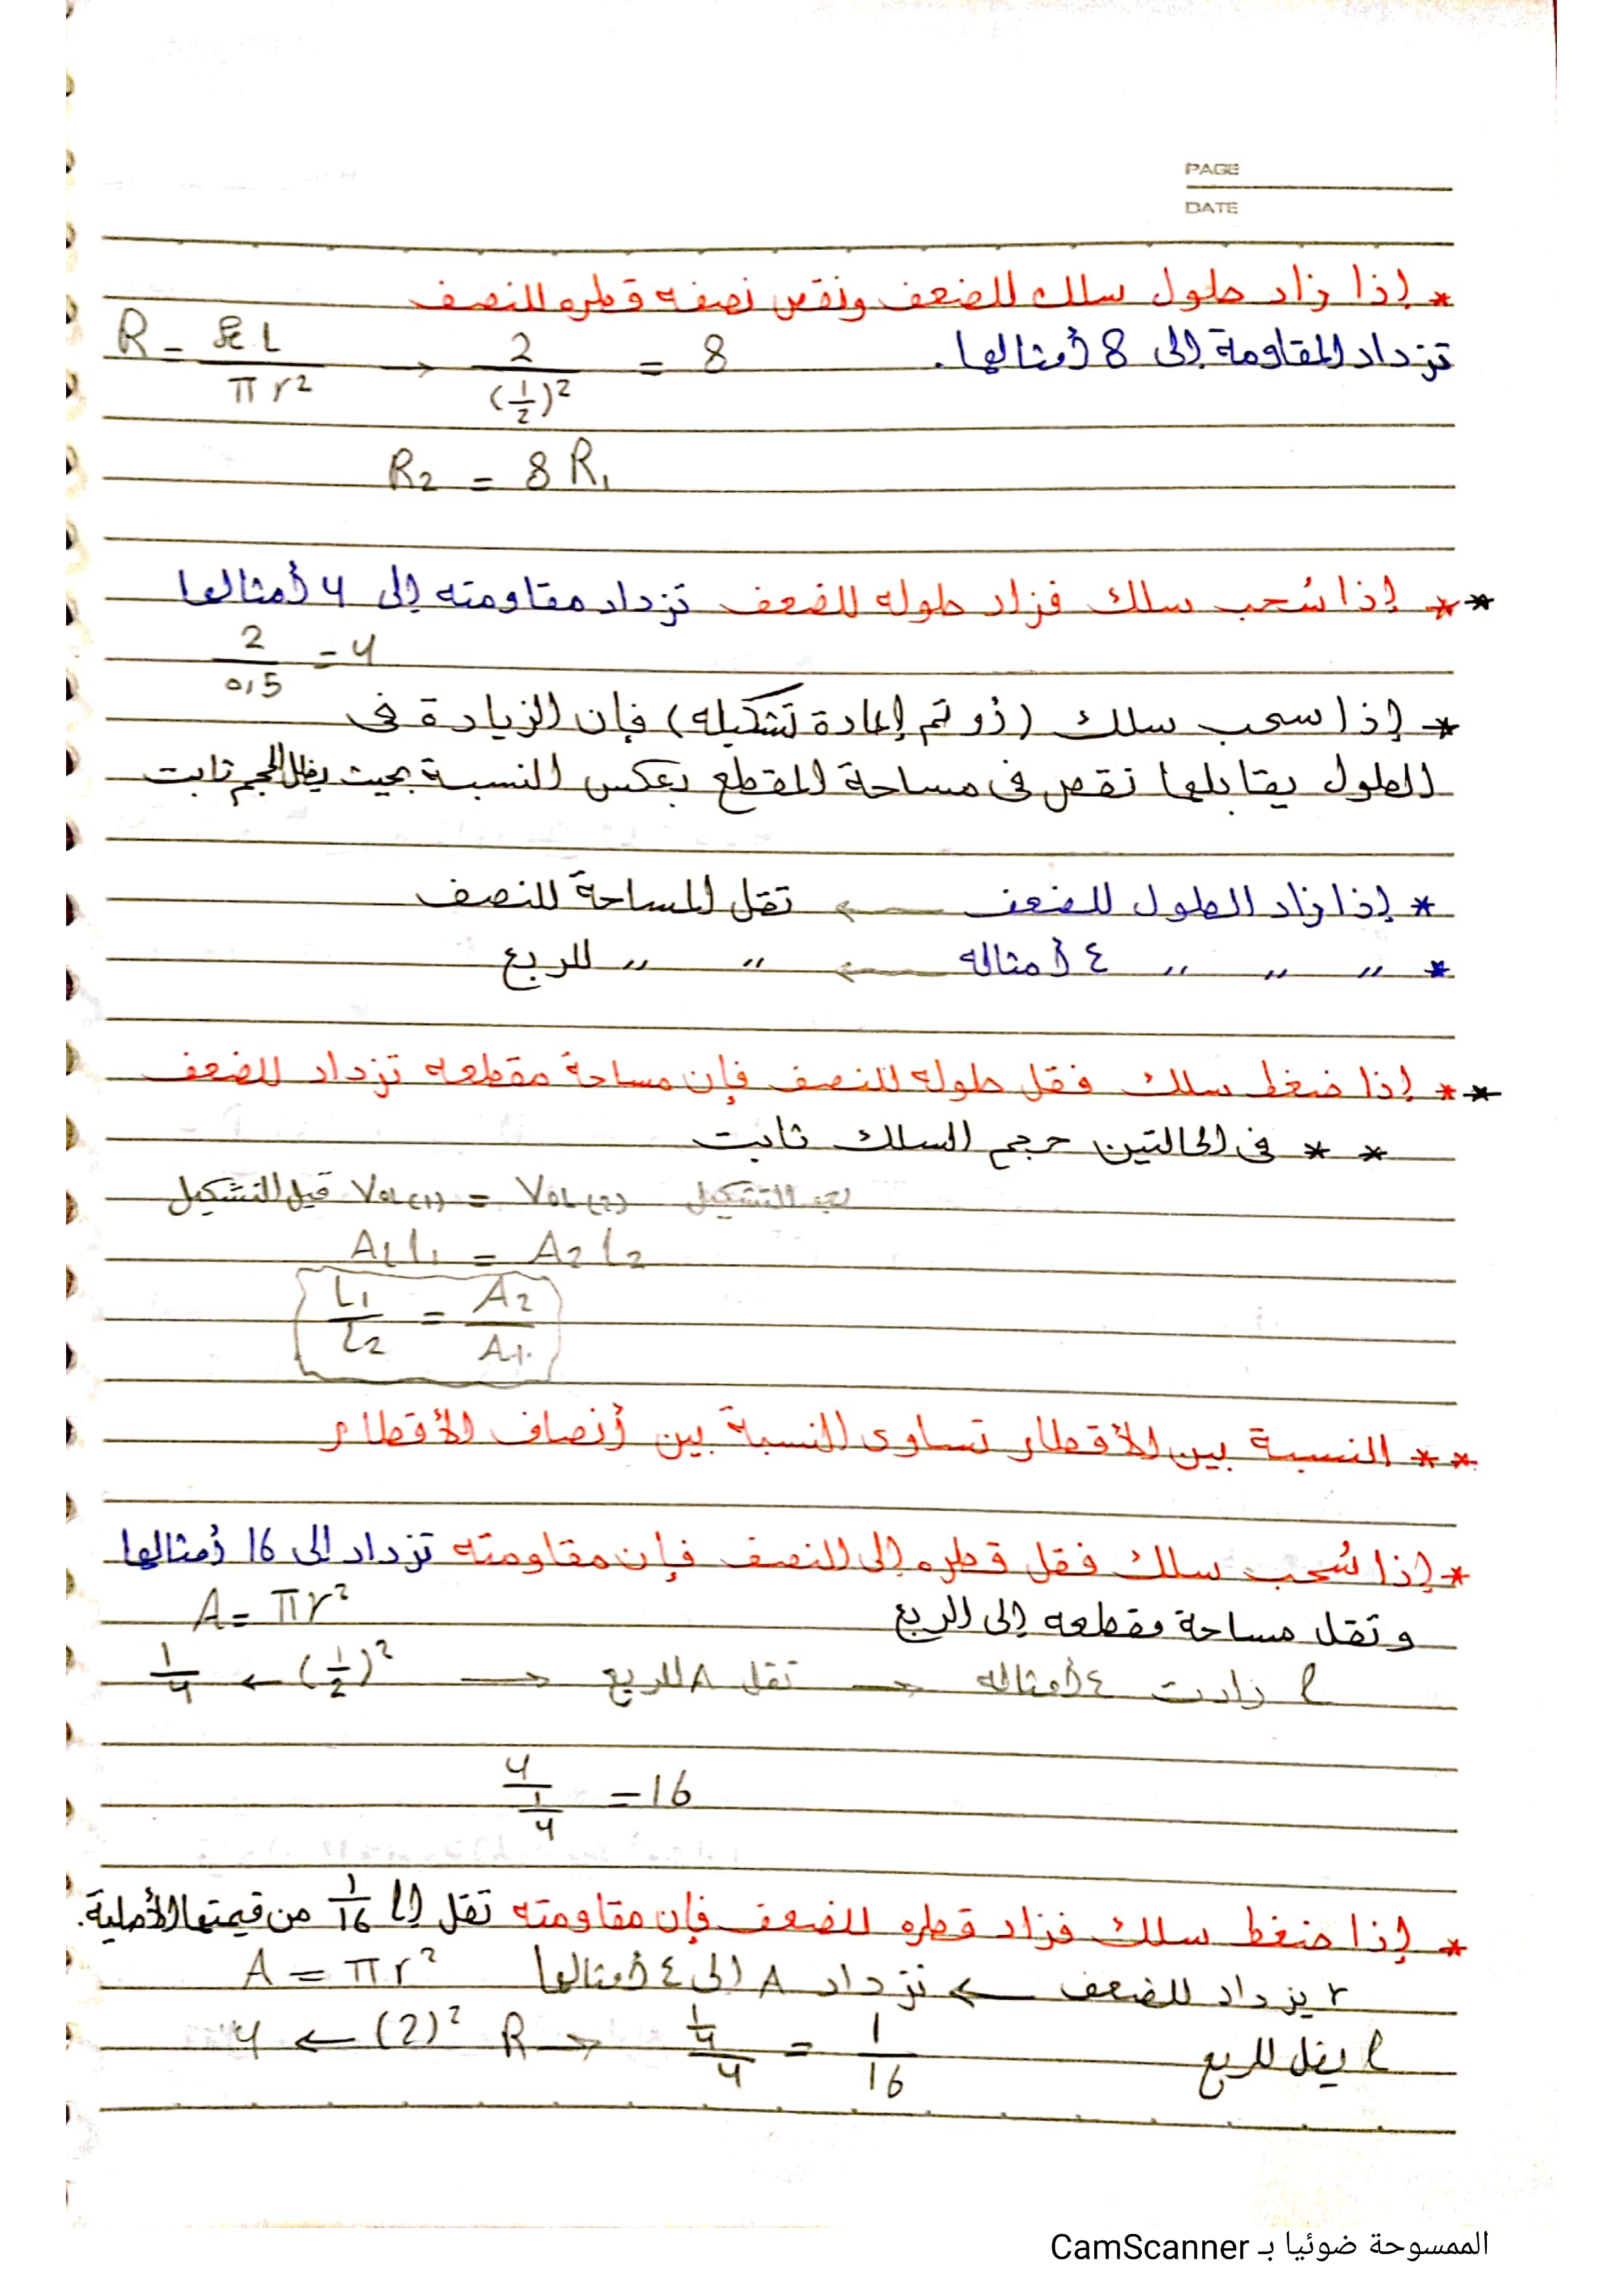 PAGE
DATE
* إذا زاد طول سلك للضعف ونقص نصف قطره للنصف
تزداد المقاومة إلى 8 أمثالها.
R = ρe L / π r² → 2 / (1/2)² = 8
R2 = 8 R1
** إذا سُحب سلك فزاد طوله للضعف تزداد مقاومته إلى 4 أمثالها
2 / 0,5 = 4
* إذا سحب سلك (أو تم إعادة تشكيله) فإن الزيادة فى
الطول يقابلها نقص فى مساحة المقطع بعكس النسبة بحيث يظل الحجم ثابت
* إذا زاد الطول للضعف ← تقل المساحة للنصف
* " " " ٤ أمثاله ← " " للربع
** إذا ضغط سلك فقل طوله للنصف فإن مساحة مقطعه تزداد للضعف
** فى الحالتين حجم السلك ثابت
قبل التشكيل Vol(1) = Vol(2) بعد التشكيل
A1 L1 = A2 L2
L1 / L2 = A2 / A1
** النسبة بين الأقطار تساوى النسبة بين أنصاف الأقطار
* إذا سُحب سلك فقل قطره إلى للنصف فإن مقاومته تزداد إلى 16 أمثالها
وتقل مساحة مقطعه إلى الربع A = π r²
1/4 ← (1/2)² → تقل A للربع → l زادت ٤ أمثاله
4 / 1/4 = 16
* إذا ضغط سلك فزاد قطره للضعف فإن مقاومته تقل إلى 1/16 من قيمتها الأصلية.
r يزداد للضعف ← تزداد A إلى ٤ أمثالها A = π r²
4 ← (2)² R → 1/4 / 4 = 1/16 l يقل للربع
الممسوحة ضوئيا بـ CamScanner